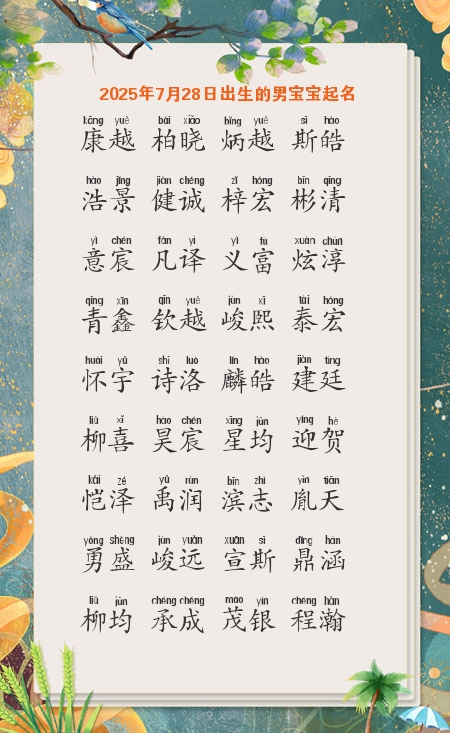 2025年7月28日出生的男宝宝起名
kāng yuè bái xiǎo bǐng yuè sī hào
康越 柏晓 炳越 斯皓
hào jǐng jiàn chéng zǐ hóng bīn qīng
浩景 健诚 梓宏 彬清
yì chén fán yì yì fù xuàn chún
意宸 凡译 义富 炫淳
qīng xīn qīn yuè jùn xī tài hóng
青鑫 钦越 峻熙 泰宏
huái yǔ shī luò lín hào jiàn tíng
怀宇 诗洛 麟皓 建廷
liǔ xǐ hào chén xīng jūn yíng hè
柳喜 昊宸 星均 迎贺
kǎi zé yǔ rùn bīn zhì yìn tiān
恺泽 禹润 滨志 胤天
yǒng shèng jùn yuǎn xuān sī dǐng hán
勇盛 峻远 宣斯 鼎涵
liǔ jūn chéng chéng mào yín chéng hàn
柳均 承成 茂银 程瀚